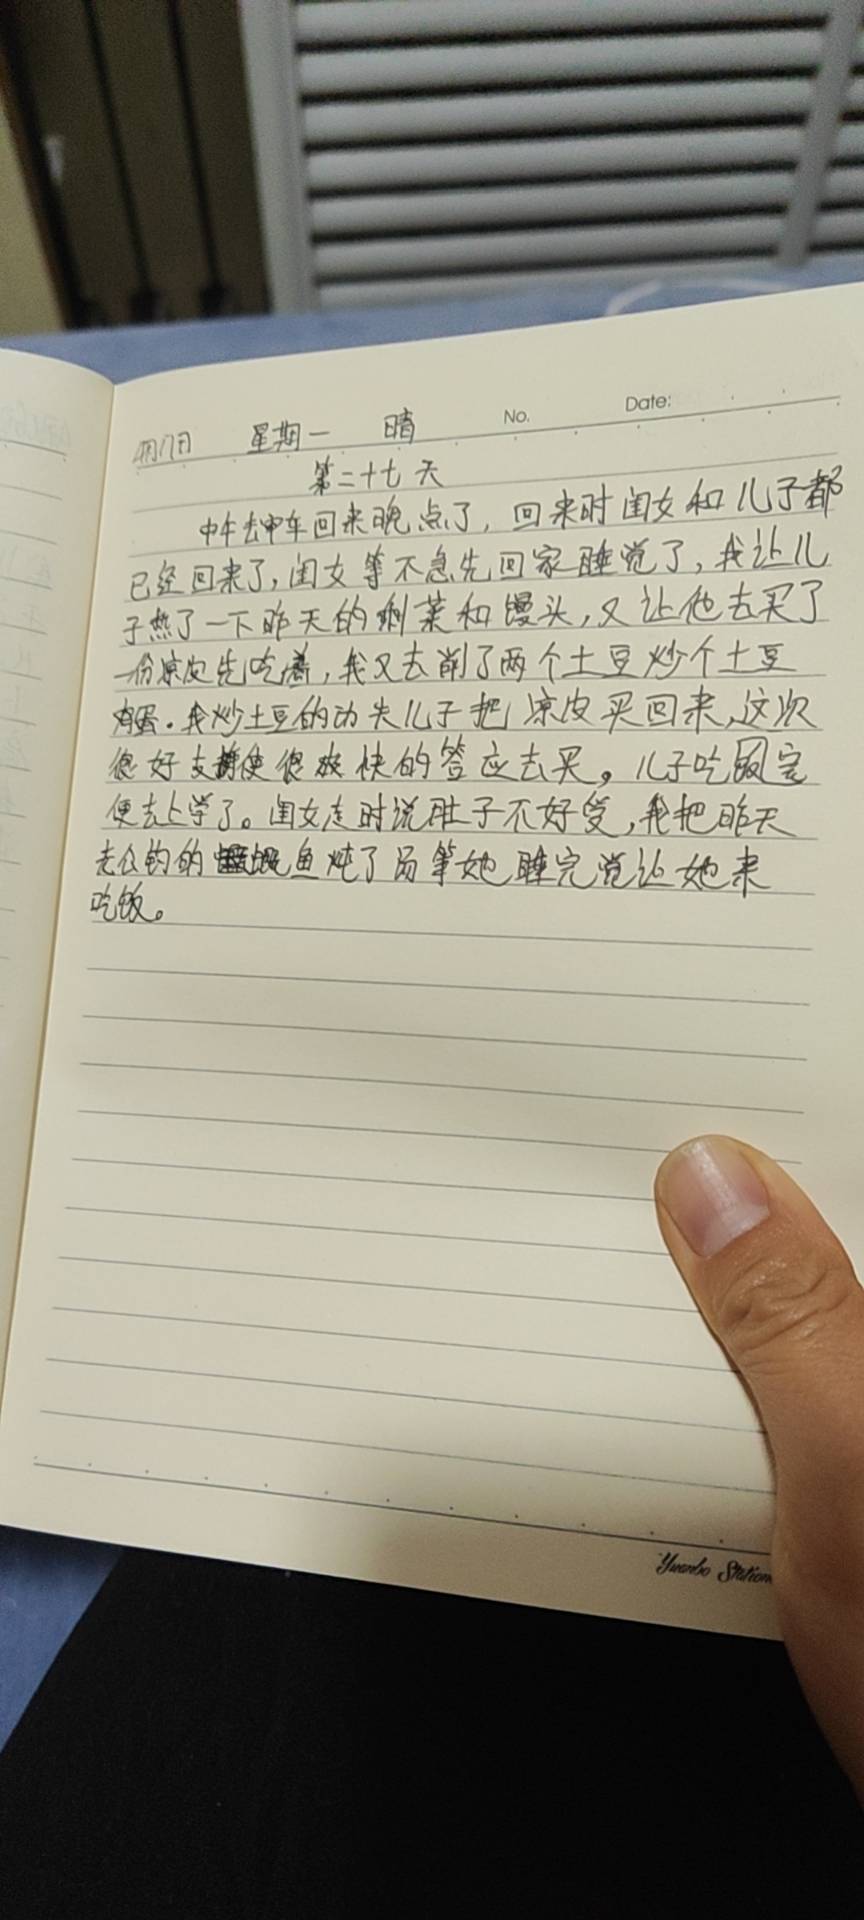 4月17日 星期一 晴 No. Date:
第二十七天
中午去审车回来晚点了，回来时闺女和儿子都
已经回来了，闺女等不急先回家睡觉了，我让儿
子热了一下昨天的剩菜和馒头，又让他去买了
一份凉皮先吃着，我又去削了两个土豆炒个土豆
鸡蛋。我炒土豆的功夫儿子把凉皮买回来，这次
很好支使很爽快的答应去买。儿子吃饭完
便去上学了。闺女走时说肚子不好受，我把昨天
老公钓的鱼炖了后等她睡完觉让她来
吃饭。
Yuanbo Station